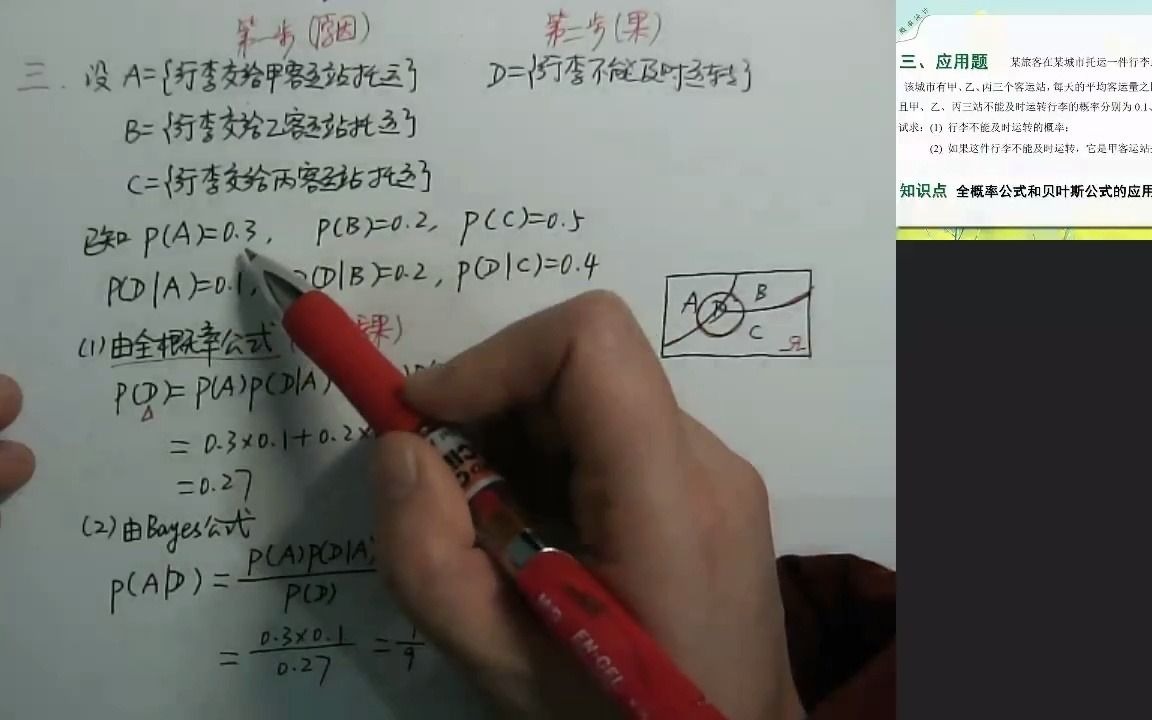 第一步(原因) 第二步(果)
三. 设 A={行李交给甲客运站托运} D={行李不能及时运转}
B={行李交给乙客运站托运}
C={行李交给丙客运站托运}
已知 P(A)=0.3, P(B)=0.2, P(C)=0.5
P(D|A)=0.1, (D|B)=0.2, P(D|C)=0.4
A B
D
C
Ω
(1) 由全概率公式 果)
P(D)= P(A)P(D|A)
= 0.3×0.1+0.2×
=0.27
(2) 由Bayes公式
P(A|D) = P(A)P(D|A)
P(D)
= 0.3×0.1 = 1
0.27 9
概率统计
三、应用题 某旅客在某城市托运一件行李
该城市有甲、乙、丙三个客运站,每天的平均客运量之
且甲、乙、丙三站不能及时运转行李的概率分别为 0.1、
试求: (1) 行李不能及时运转的概率;
(2) 如果这件行李不能及时运转，它是甲客运站
知识点 全概率公式和贝叶斯公式的应用